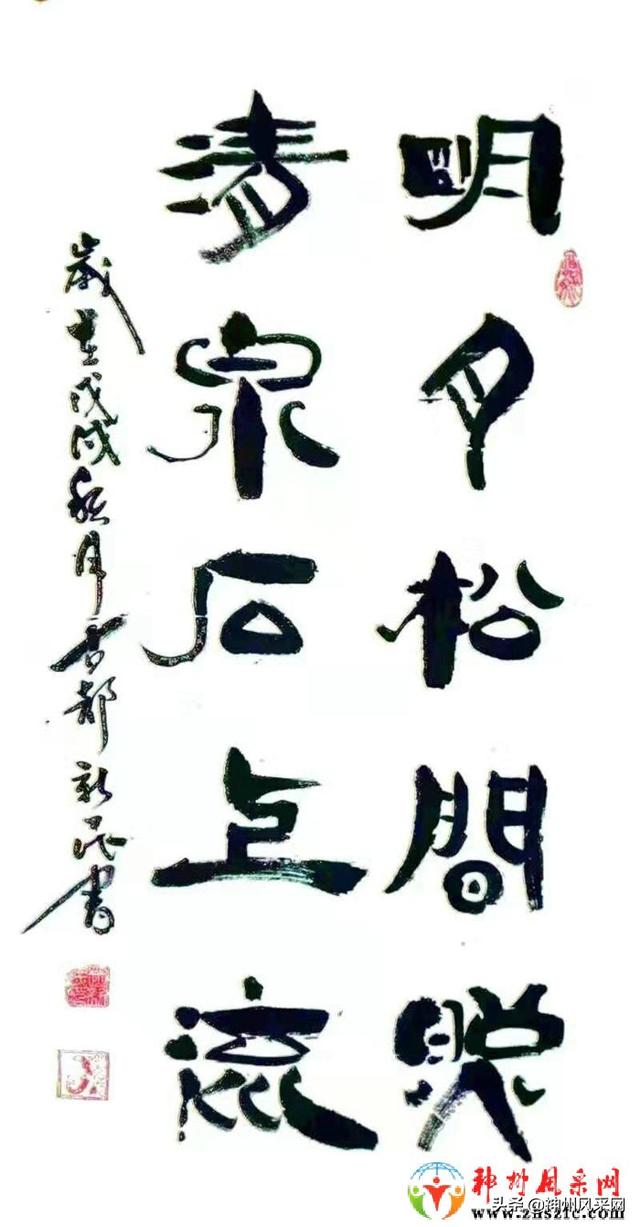 明月松間照
清泉石上流
歲在戊戌秋月古都新民書
神州风采网
头条 @神州风采网